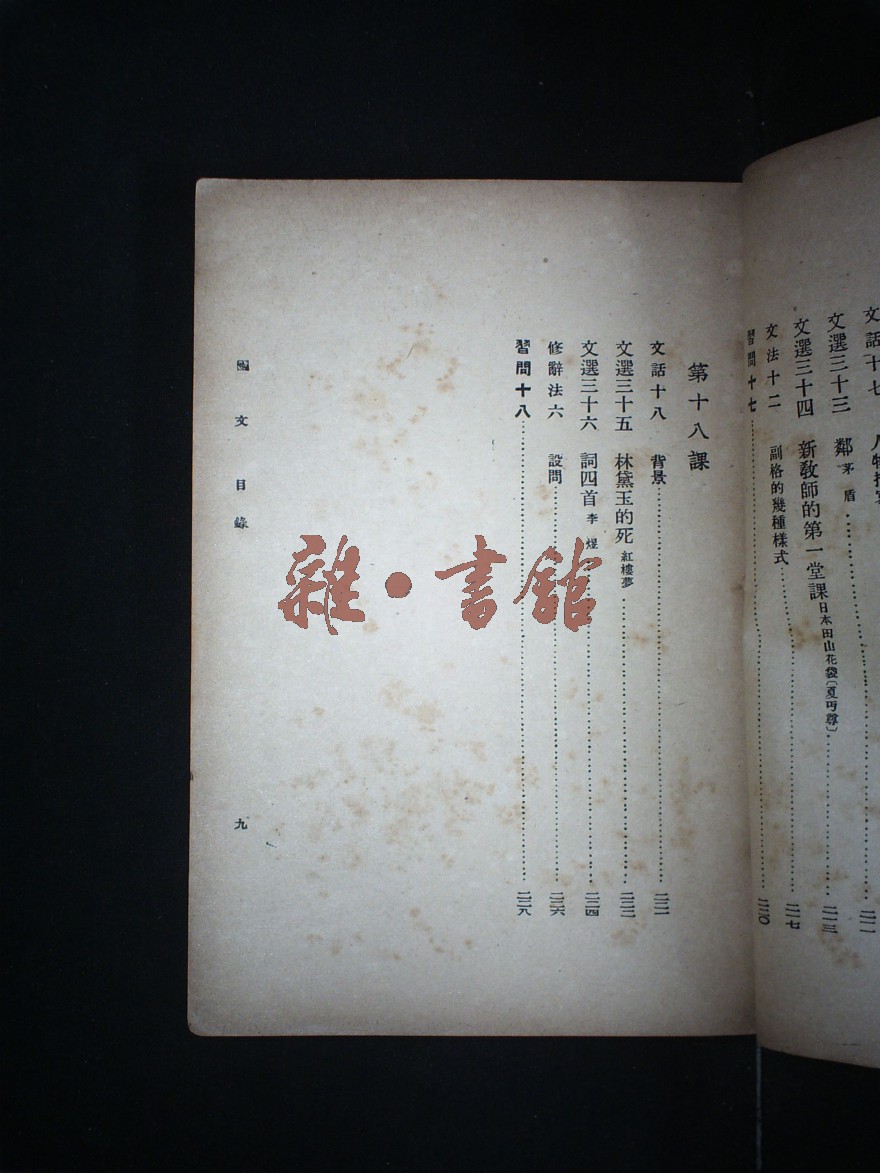 文話十七 人物描寫……二一一
文選三十三 鄰 茅盾……二一三
文選三十四 新教師的第一堂課 日本田山花袋〔夏丏尊〕……二一三
文法十二 副格的幾種樣式……二一七
習問十七……二二〇
第十八課
文話十八 背景……二二一
文選三十五 林黛玉的死 紅樓夢……二二三
文選三十六 詞四首 李煜……二二四
修辭法六 設問……二二六
習問十八……二二八
國文目錄
九
雜·書館